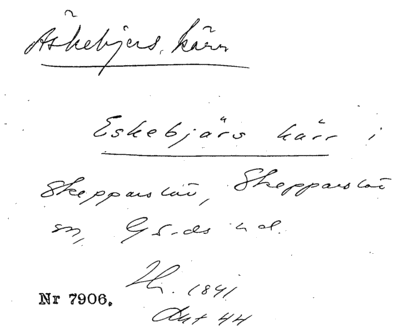 Äskebjers kärr
Eskebjärs kärr i
Skepparslöv, Skepparslöv
sn, Gärds hd.
Nr 7906.
1841
Akt 44